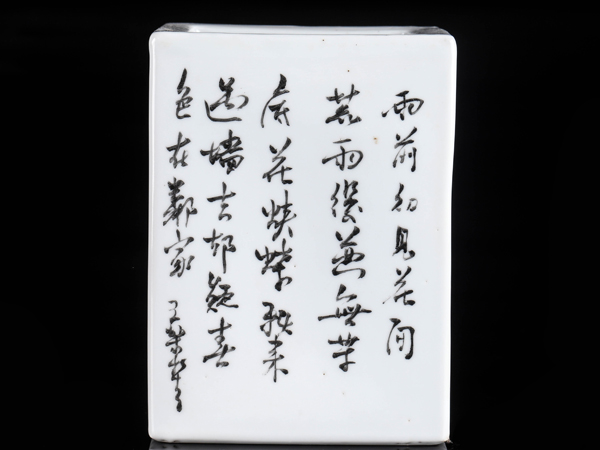 雨前初見花間
蕊雨後兼無葉
底花蛺蝶飛来
過墻去却疑春
色在鄰家